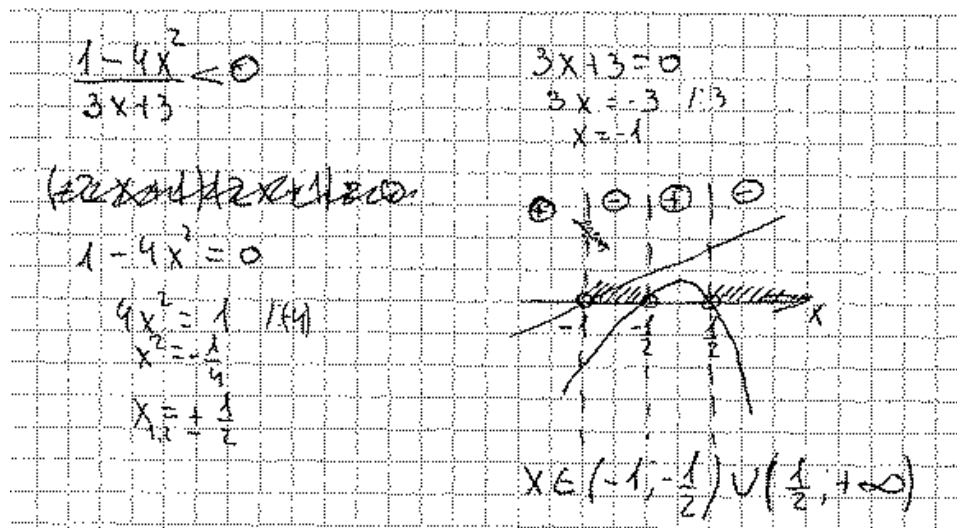 1-4x²
/ 3x+3 < 0
1-4x² = 0
4x² = 1 /(4)
x² = -1/4
x₁,₂ = ± 1/2
3x+3=0
3x = -3 /:3
x = -1
⊕ ⊖ ⊕ ⊖
-1 -1/2 1/2 x
x∈(-1;-1/2)∪(1/2;+∞)